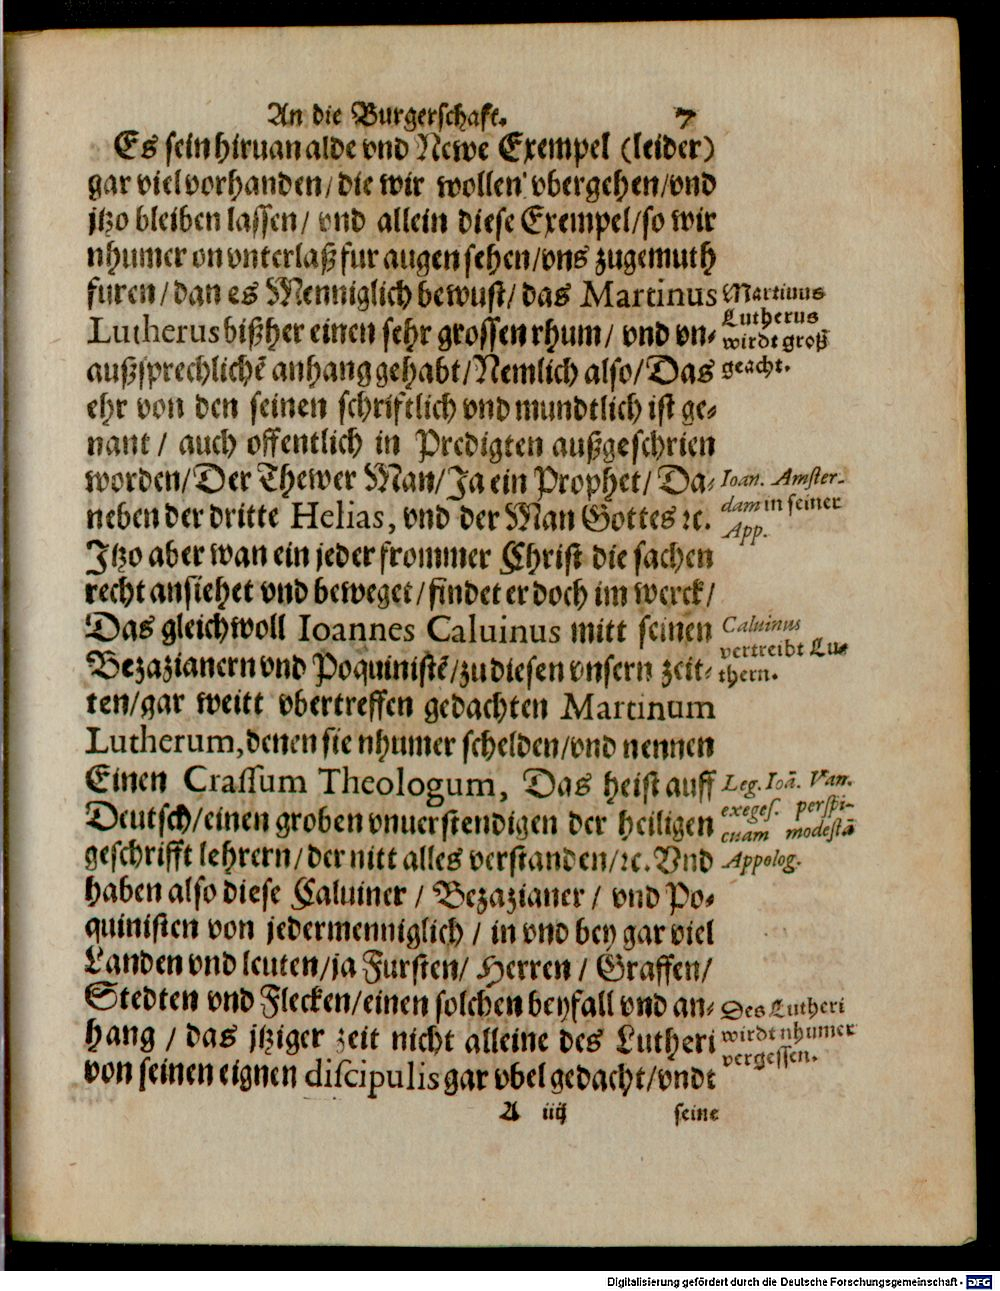 An die Burgerschafft. 7
Es sein hiruan alde vnd Newe Exempel (leider)
gar viel vorhanden/ die wir wollen vbergehen/vnd
jtzo bleiben lassen/ vnd allein diese Exempel/so wir
nhumer on vnterlaß fur augen sehen/vns zugemuth
furen/dan es Menniglich bewust/das Martinus
Lutherus bißher einen sehr grossen rhum/ vnd vn-
außsprechlichē anhang gehabt/Nemlich also/Das
ehr von den seinen schrifftlich vnd mundtlich ist ge-
nant / auch offentlich in Predigten außgeschrien
worden/Der Thewer Man/Ja ein Prophet/ Da-
neben der dritte Helias, vnd der Man Gottes ꝛc.
Jtzo aber wan ein jeder frommer Christ die sachen
recht ansiehet vnd beweget/findet er doch im werck/
Das gleichwoll Ioannes Caluinus mitt seinen
Bezazianern vnd Poquinistē/zu diesen vnsern zeit-
ten/gar weitt vbertreffen gedachten Martinum
Lutherum, denen sie nhumer schelden/vnd nennen
Einen Crassum Theologum, Das heist auff
Deutsch/einen groben vnuerstendigen der heiligen
geschrifft lehrern/der nitt alles verstanden/ꝛc. Vnd
haben also diese Caluiner / Bezazianer / vnd Po-
quinisten von jedermenniglich / in vnd bey gar viel
Landen vnd leuten/ja Fursten/ Herren / Graffen/
Stedten vnd Flecken/einen solchen beyfall vnd an-
hang / das jtziger zeit nicht alleine des Lutheri
von seinen eignen discipulis gar vbel gedacht/vndt
A iiij seine
Martinus
Lutherus
wirdt groß
geacht.
Ioan. Amster-
dam in seiner
App.
Caluinus
vertreibt Lu-
thern.
Leg. Ioā. Van.
exeges. perspi-
cuam modestā
Appolog.
Des Lutheri
wirdt nhumer
vergessen.
Digitalisierung gefördert durch die Deutsche Forschungsgemeinschaft - DFG